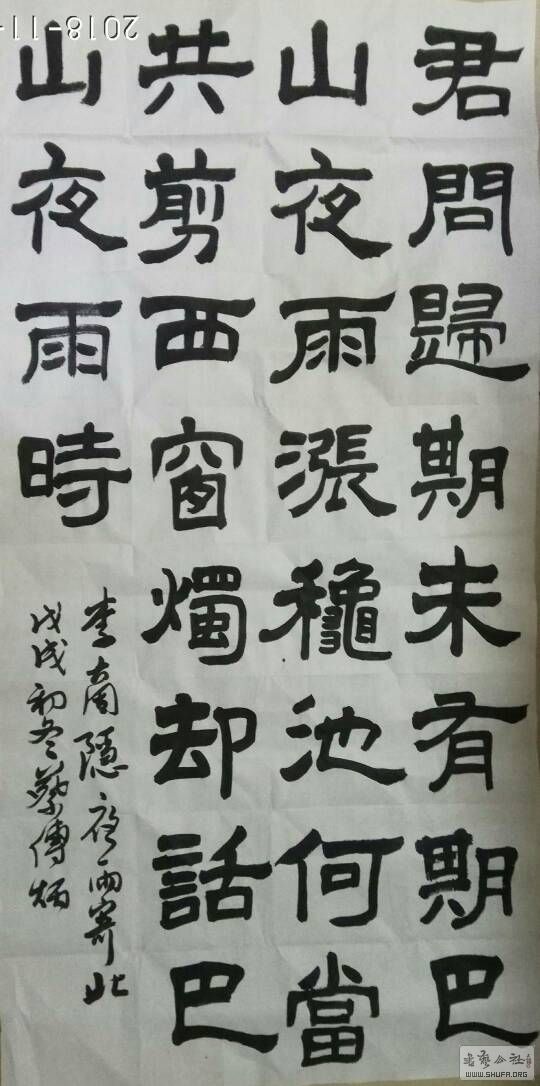 君問歸期未有期巴
山夜雨漲龝池何當
共剪西窗燭却話巴
山夜雨時
李商隱夜雨寄北
戊戌初冬蔡傳炳
2018-11-
書藝公社
WWW.SHUFA.ORG